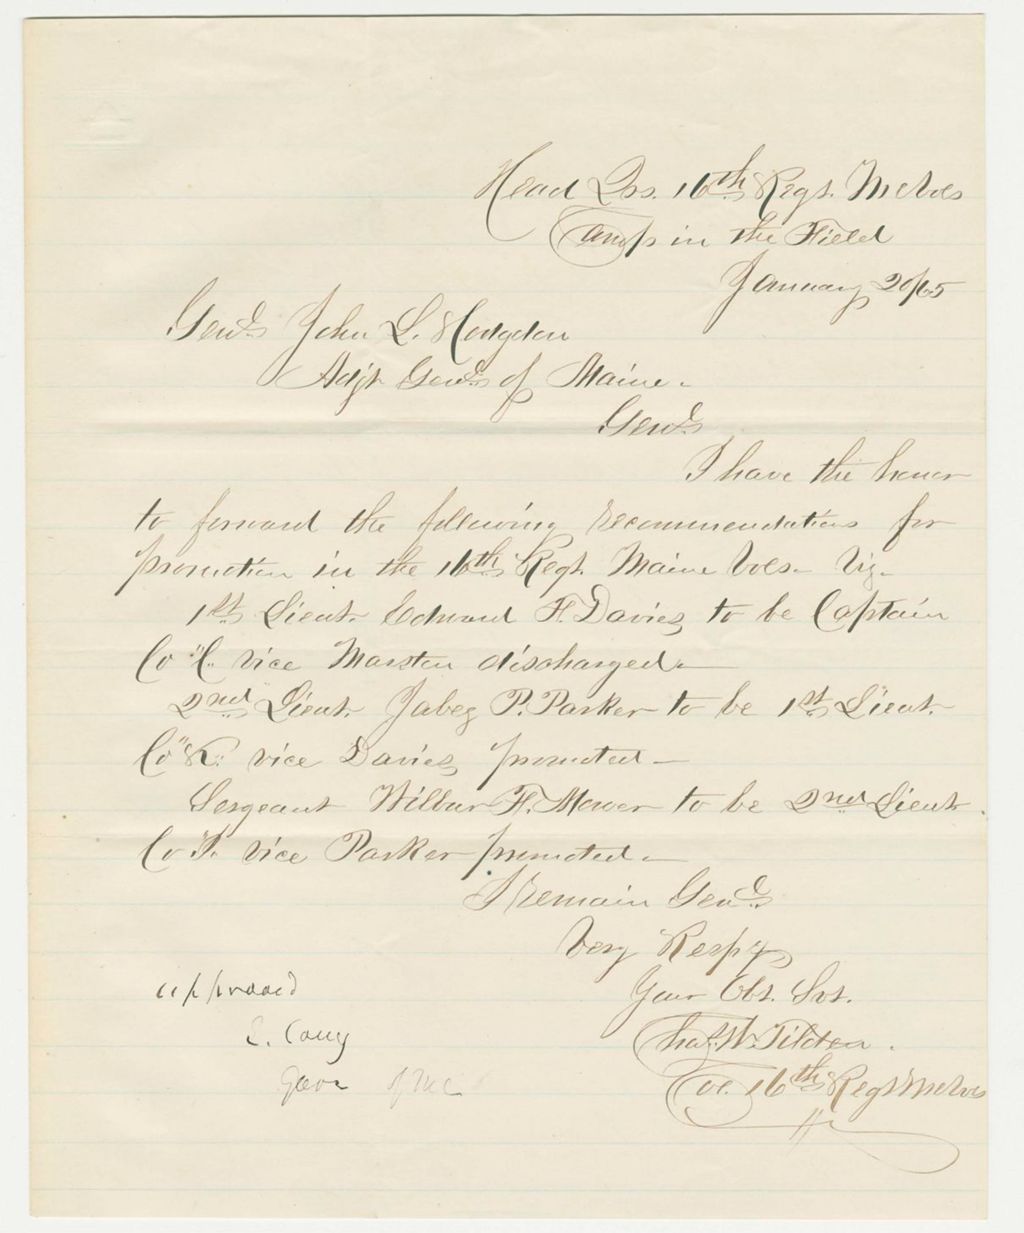 Head Qrs. 16th Regt. Me Vols
Camp in the Field
January 20/65
Genl. John L. Hodgdon
Adjt Genl. of Maine.
Genl.
I have the honor
to forward the following recommendations for
promotion in the 16th Regt. Maine Vols. Viz.
1st Lieut. Edward F. Davies to be Captain
Co "C" vice Marston discharged.
2nd Lieut. Jabez P. Parker to be 1st Lieut.
Co "K" vice Davies promoted.
Sergeant Wilbur F. Mower to be 2nd Lieut.
Co "I" vice Parker promoted.
I remain Genl.
Very Respy
Your Obt. Svt.
Chas. W. Tilden.
Col. 16th Regt Me Vols
approved
S. Cony
Gov of Me